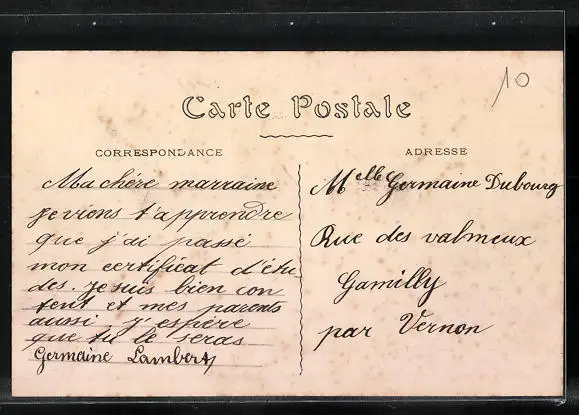 10
Carte Postale
CORRESPONDANCE
Ma chére marraine
je viens t'apprendre
que j'ai passé
mon certificat d'étu
des. je suis bien con
tent et mes parents
aussi, j'espère
que tu le seras
Germaine Lambert
ADRESSE
Melle Germaine Dubourg
Rue des valmeux
Gamilly
par Vernon